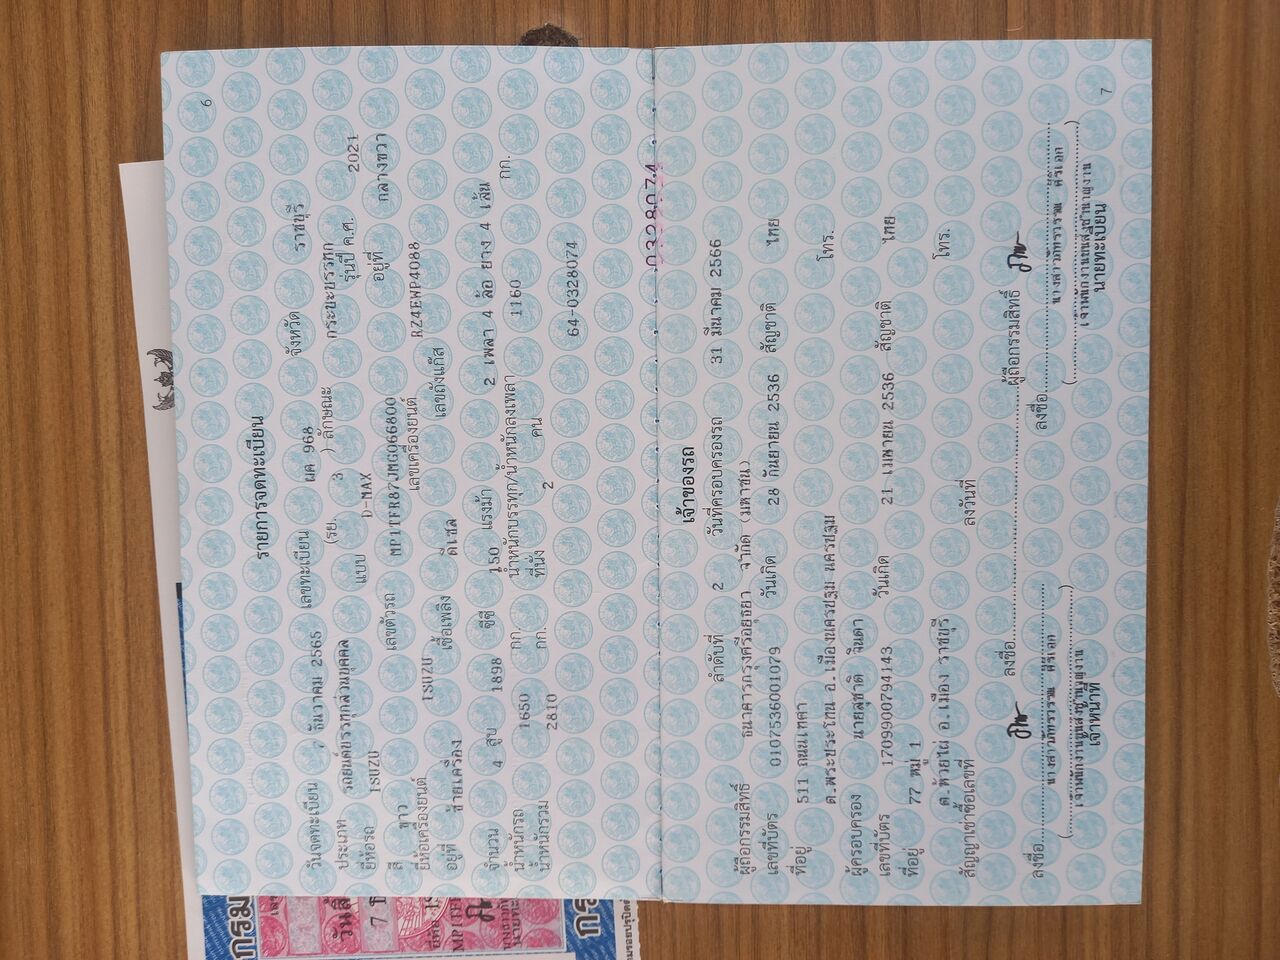 6
รายการจดทะเบียน
วันจดทะเบียน 7 ธันวาคม 2565 เลขทะเบียน ผค 968 จังหวัด ราชบุรี
ประเภท รถยนต์บรรทุกส่วนบุคคล (รย. 3 ) ลักษณะ กระบะบรรทุก
ยี่ห้อรถ ISUZU แบบ D-MAX รุ่นปี ค.ศ. 2021
สี ขาว เลขตัวรถ MP1TFR87JMG066800 อยู่ที่ กลางขวา
ยี่ห้อเครื่องยนต์ ISUZU เลขเครื่องยนต์ RZ4EWP4088
อยู่ที่ ซ้ายเครื่อง เชื้อเพลิง ดีเซล เลขถังแก๊ส
จำนวน 4 สูบ 1898 ซีซี 150 แรงม้า 2 เพลา 4 ล้อ ยาง 4 เส้น
น้ำหนักรถ 1650 กก. น้ำหนักบรรทุก/น้ำหนักลงเพลา 1160 กก.
น้ำหนักรวม 2810 กก. ที่นั่ง 2 คน
64-0328074
0328074
เจ้าของรถ
ลำดับที่ 2 วันที่ครอบครองรถ 31 มีนาคม 2566
ผู้ถือกรรมสิทธิ์ ธนาคารกรุงศรีอยุธยา จำกัด (มหาชน)
เลขที่บัตร 0107536001079 วันเกิด 28 กันยายน 2536 สัญชาติ ไทย
ที่อยู่ 511 ถนนเทศา โทร.
ต.พระประโทน อ.เมืองนครปฐม นครปฐม
ผู้ครอบครอง นายสุชาติ จินดา
เลขที่บัตร 1709900794143 วันเกิด 21 เมษายน 2536 สัญชาติ ไทย
ที่อยู่ 77 หมู่ 1 โทร.
ต.ห้วยไผ่ อ.เมือง ราชบุรี
สัญญาเช่าซื้อเลขที่ ลงวันที่
ลงชื่อ ผู้ถือกรรมสิทธิ์
ลงชื่อ ลงชื่อ
เจ้าหน้าที่ นายทะเบียน
7
กรม
7 ธ
MP1TF